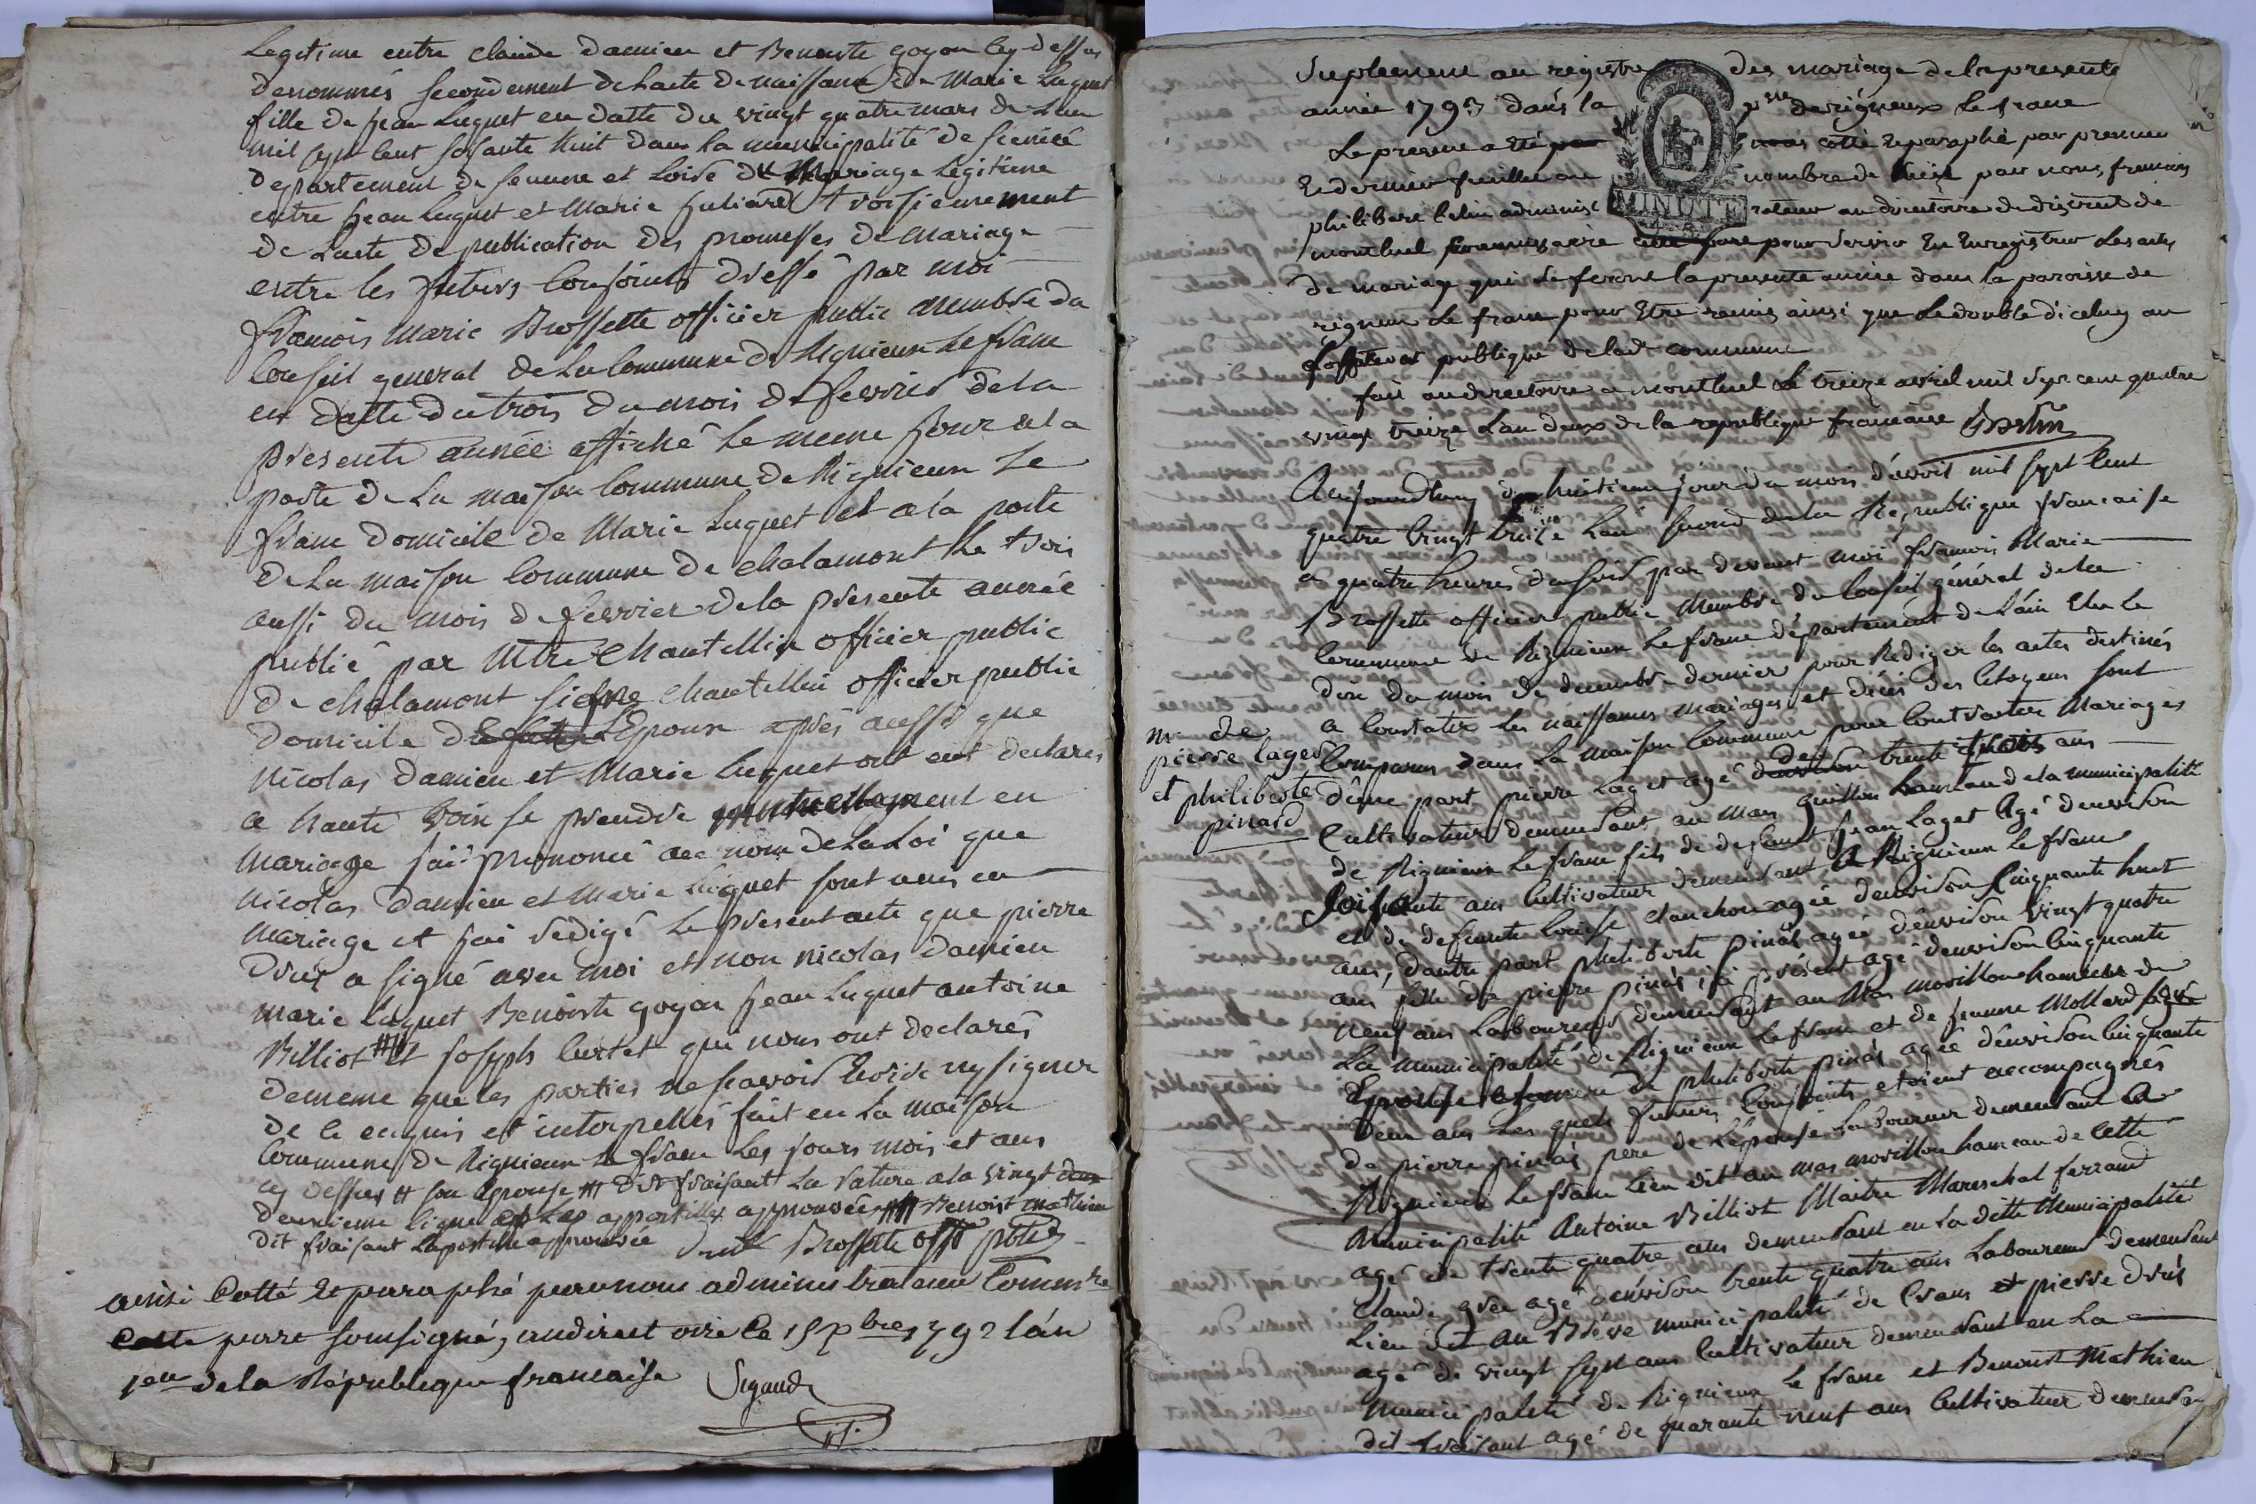 Legitime entre claude damien et Benoiste goyon cy dessus
denommés secondement de Lacte de naissance de Marie Luquet
fille de jean Luquet en datte du vingt quatre mars de L'an
mil sept cent soisante huit dans la municipalité de
departement de et Loire du Mariage Legitime
entre jean Luquet et Marie juliard troisiemement
de Lacte de publication des promesses de Mariage
entre les futurs conjoints dressé par moi
francois Marie Brossette officier public membre du
conseil general de La commune de Rignieux Le franc
en datte du trois du mois de fevrier de la
presente année affiché le meme jour a la
porte de La maison commune de Rignieux Le
franc domicile de Marie Luquet et a la porte
de La maison commune de chalamont Le trois
aussi du mois de fevrier de la presente année
publié par Mtre chantellin officier public
de chalamont signé chantellin officier public
domicile de L'Epoux après aussi que
Nicolas damien et Marie Luquet ont eut declarés
a haute voix se prendre mutuellement en
Mariage j'ai prononcé au nom de La Loi que
Nicolas damien et Marie Luquet sont unis en
Mariage et j'ai redigé Le present acte que pierre
Drus a signé avec moi et non nicolas damien
Marie Luquet Benoiste goyon jean Luquet antoine
Billiot et joseph curtet qui nous ont declarés
de meme que les parties ne scavoir Ecrire ny signer
de ce enquis et interpellés fait en La maison
commune de Rignieux Le franc Les jours mois et ans
cy dessus # son Epouse ## dit fraisant La rature a la vingt
deuxieme ligne et Les apostilles approuvée ### Benoist mathieu
dit fraisant L'apostille approuvée Brossette offr pblic
ainsi Cotté et paraphé par nous administrateur Commre
soussigné, au directoire le 15 xbre 1792 l'an
1er de la République francaise Sigaud
Suplement au registre des mariage de la presente
année 1793 dans la psse de rigneux Le franc
Le present a eté cotté et paraphé par premier
et dernier feuillet au nombre de par nous francois
philibert belin administrateur au directoire du district de
montluel commissaire pour servir et enregistrer Les actes
de mariage qui se feront la presente année dans la paroisse de
rigneux Le franc pour Etre remis ainsi que Le double d'iceluy au
publique de lad. commune
fait au directoire a montluel Le treize avril mil sept cent quatre
vingt treize L'an deux de la republique francaise
MINUTE
Aujourdhuy huitieme jour du mois d'avril mil sept cent
quatre vingt treize L'an second de la Republique francaise
a quatre heures du soir par devant moi francois Marie
Brossette officier public Membre du conseil général de la
commune de Rignieux Le franc département de L'ain Elu Le
dix du mois de decembre dernier pour Rediger les actes destinés
a constater Les naissances mariages et décès des citoyens sont
comparus dans La maison commune pour contracter Mariages
d'une part pierre Laget agé de trente trois ans
Cultivateur demeurant au Mas guillon hameau de la municipalité
de Rignieux Le franc fils de defunt jean Laget Agé d'environ
soixante ans cultivateur demeurant a Rignieux Le franc
et de defunte Louise clanchon agée d'environ Cinquante huit
ans, d'autre part philiberte pinar agée d'environ vingt quatre
ans fille de pierre pinar, ici présent agé d'environ cinquante
neuf ans Laboureur demeurant au Mas morillon hameau de
La municipalité de Rignieux Le franc et de jeanne Mollard
Epouse et mere de philiberte pinar agée d'environ cinquante
deux ans Les quels futurs conjoints etoient accompagnés
de pierre pinar pere de L'epouse Laboureur demeurant a
Rignieux Le franc Lieu dit au mas morillon hameau de cette
Municipalité Antoine Billiot Maitre Mareschal ferrand
agé de trente quatre ans demeurant en La ditte Municipalité
Claude agé d'environ trente quatre ans Laboureur demeurant
Lieu dit au municipalité de Crans et pierre Drus
agé de vingt sept ans Cultivateur demeurant en La
Municipalité de Rignieux Le franc et Benoist Mathieu
dit fraisant agé de quarante neuf ans Cultivateur demeurant
m. de
pierre laget
et philiberte
pinard